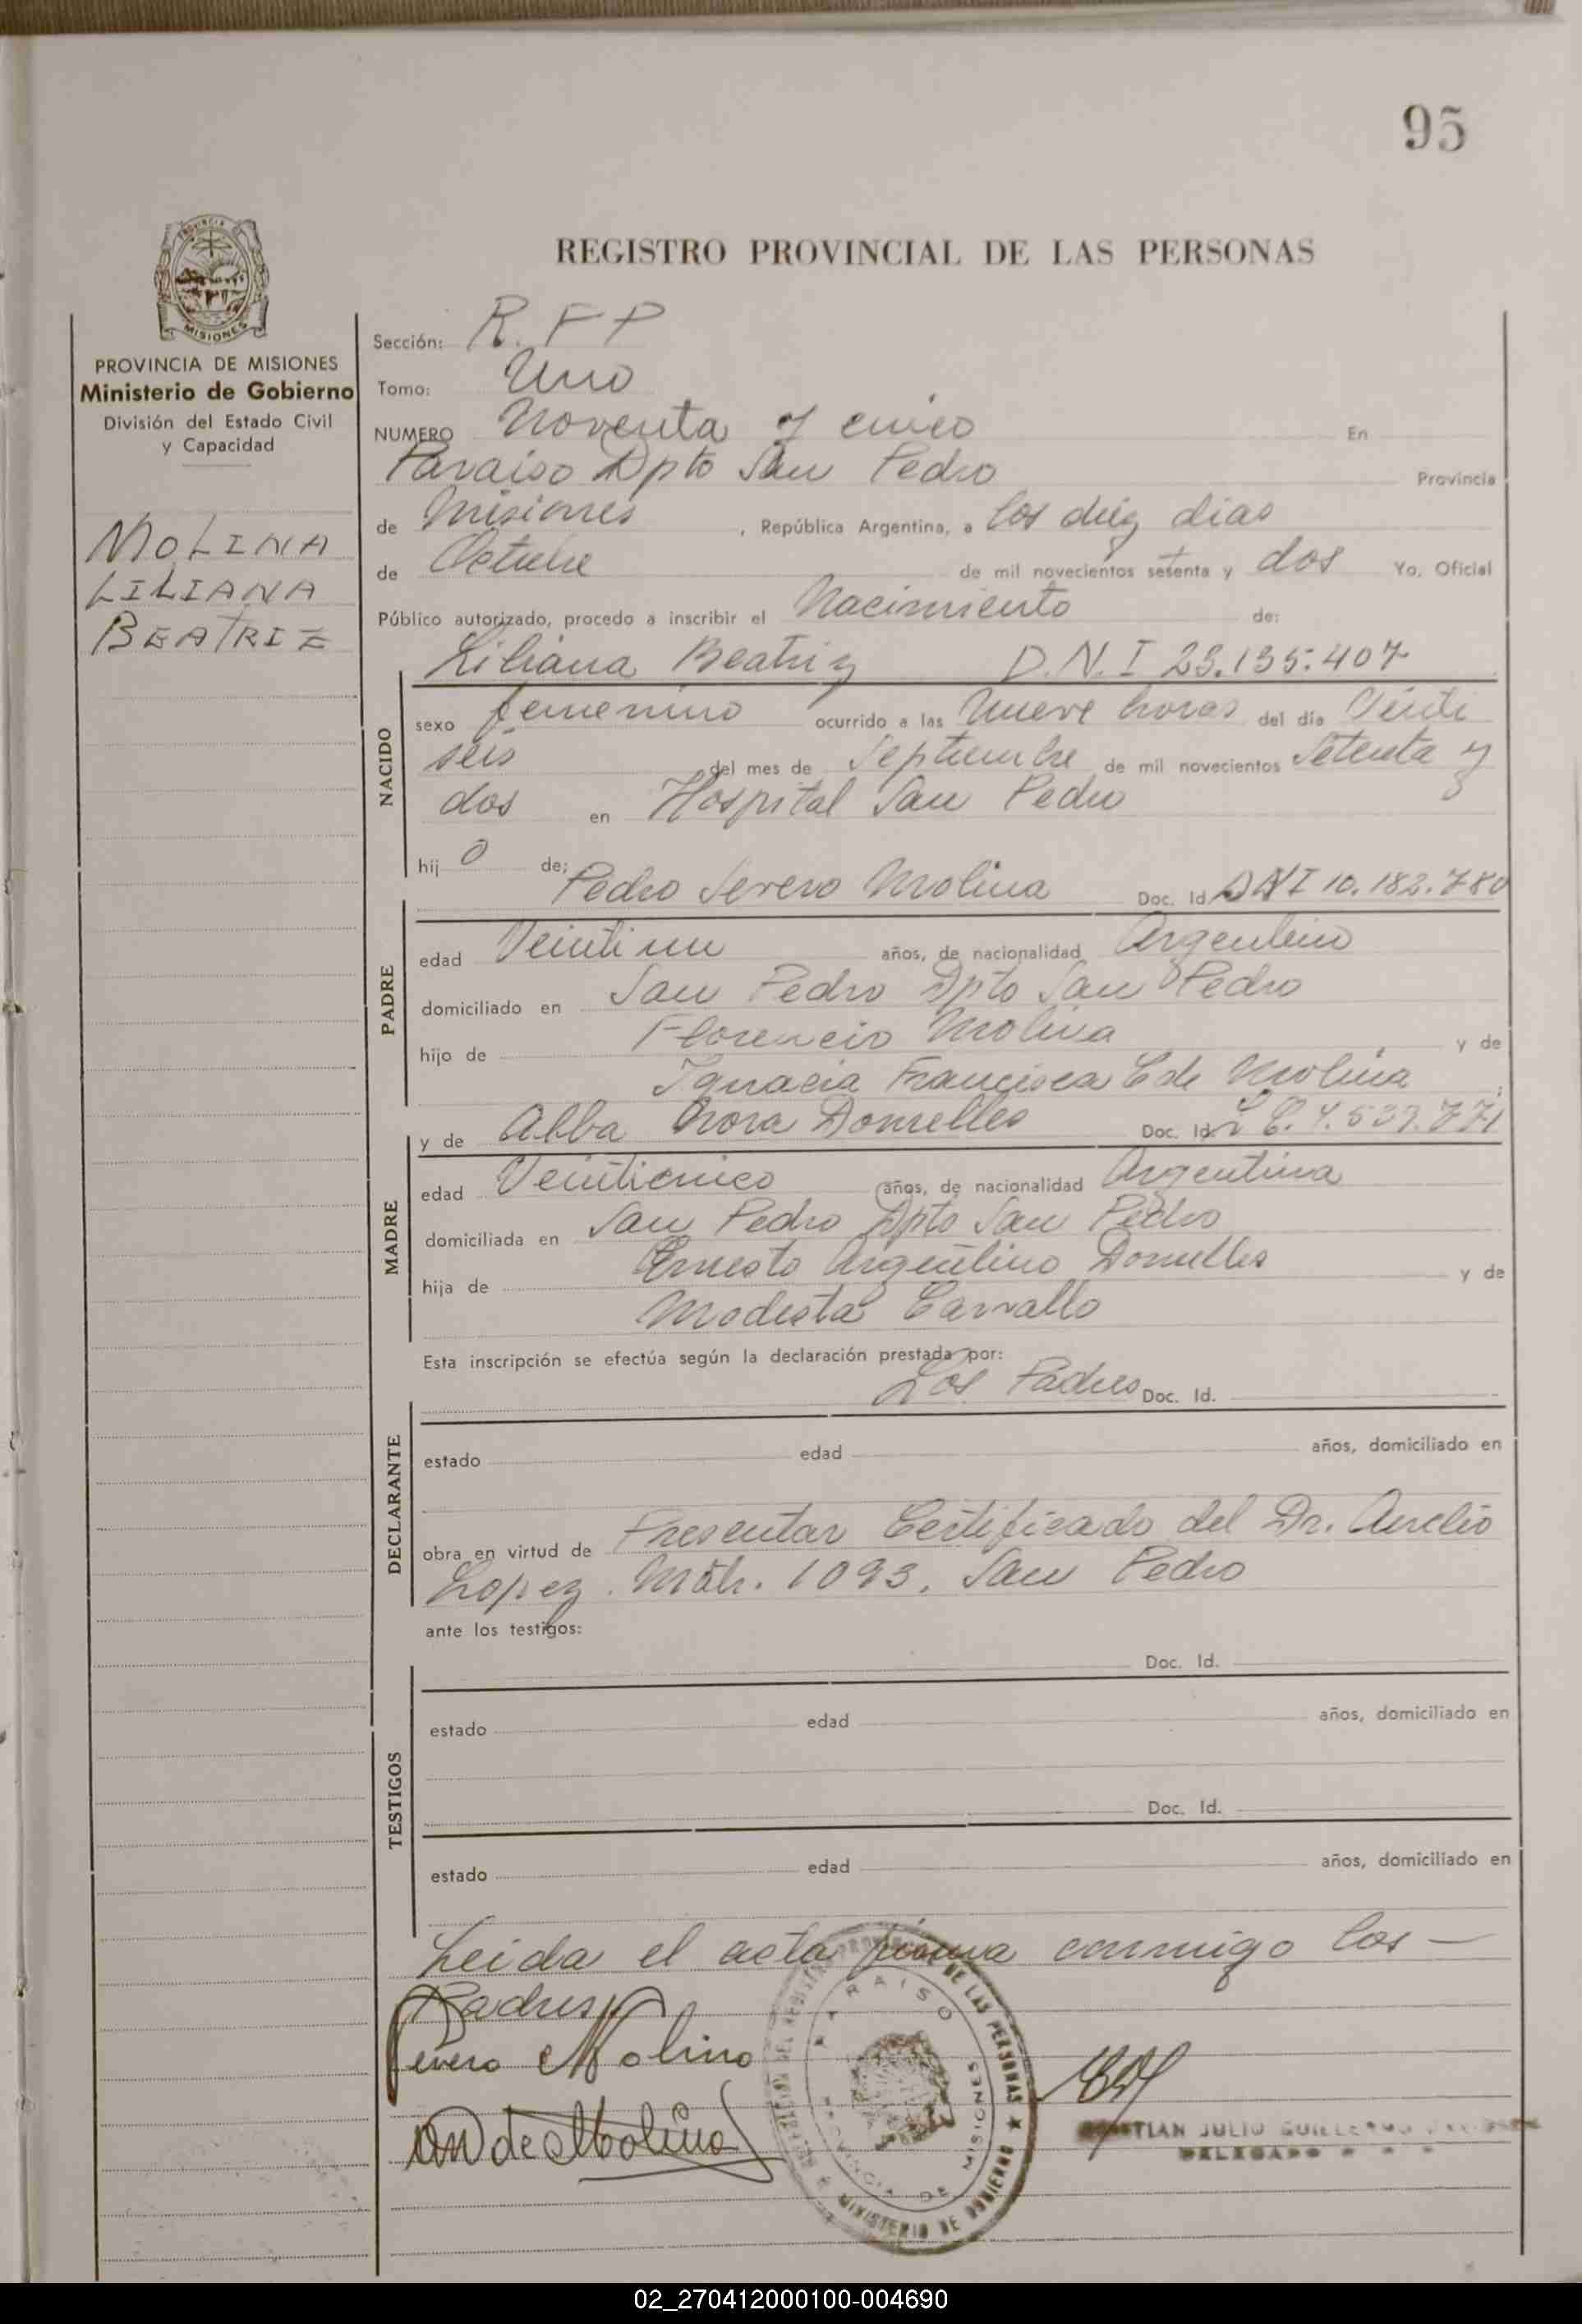 95
REGISTRO PROVINCIAL DE LAS PERSONAS
MISIONES
PROVINCIA DE MISIONES
Ministerio de Gobierno
División del Estado Civil
y Capacidad
MOLINA
LILIANA
BEATRIZ
Sección: R. F P
Tomo: Uno
NUMERO Noventa y cinco En
Paraiso Dpto San Pedro Provincia
de Misiones, República Argentina, a los diez dias
de Octubre de mil novecientos setenta y dos Yo, Oficial
Público autorizado, procedo a inscribir el Nacimiento de:
Liliana Beatriz D.N.I 23.135.407
NACIDO
sexo femenino ocurrido a las Nueve horas del día Veinti
seis del mes de Septiembre de mil novecientos Setenta y
dos en Hospital San Pedro
hij o de;
Pedro Severo Molina Doc. Id. DNI 10.182.780
PADRE
edad Veintiun años, de nacionalidad Argentino
domiciliado en San Pedro Dpto San Pedro
hijo de Florencio Molina y de
Ignacia Francisca C de Molina
y de Alba Nora Dornelles Doc. Id. L C.
MADRE
edad Veinticinco años, de nacionalidad Argentina
domiciliada en San Pedro Dpto San Pedro
hija de Ernesto Argentino Dornelles y de
Modesta Carvallo
Esta inscripción se efectúa según la declaración prestada por:
Los Padres Doc. Id.
DECLARANTE
estado edad años, domiciliado en
obra en virtud de Presentar Certificado del Dr. Aurelio
Lopez. Matr. 1093. San Pedro
ante los testigos:
Doc. Id.
TESTIGOS
estado edad años, domiciliado en
Doc. Id.
estado edad años, domiciliado en
Leida el acta firma conmigo los —
Padres
Severo Molina
de Molina
PARAISO
PROVINCIA DE MISIONES
DE LAS PERSONAS ★ MINISTERIO DE GOBIERNO
JULIO
DELEGADO
02_270412000100-004690